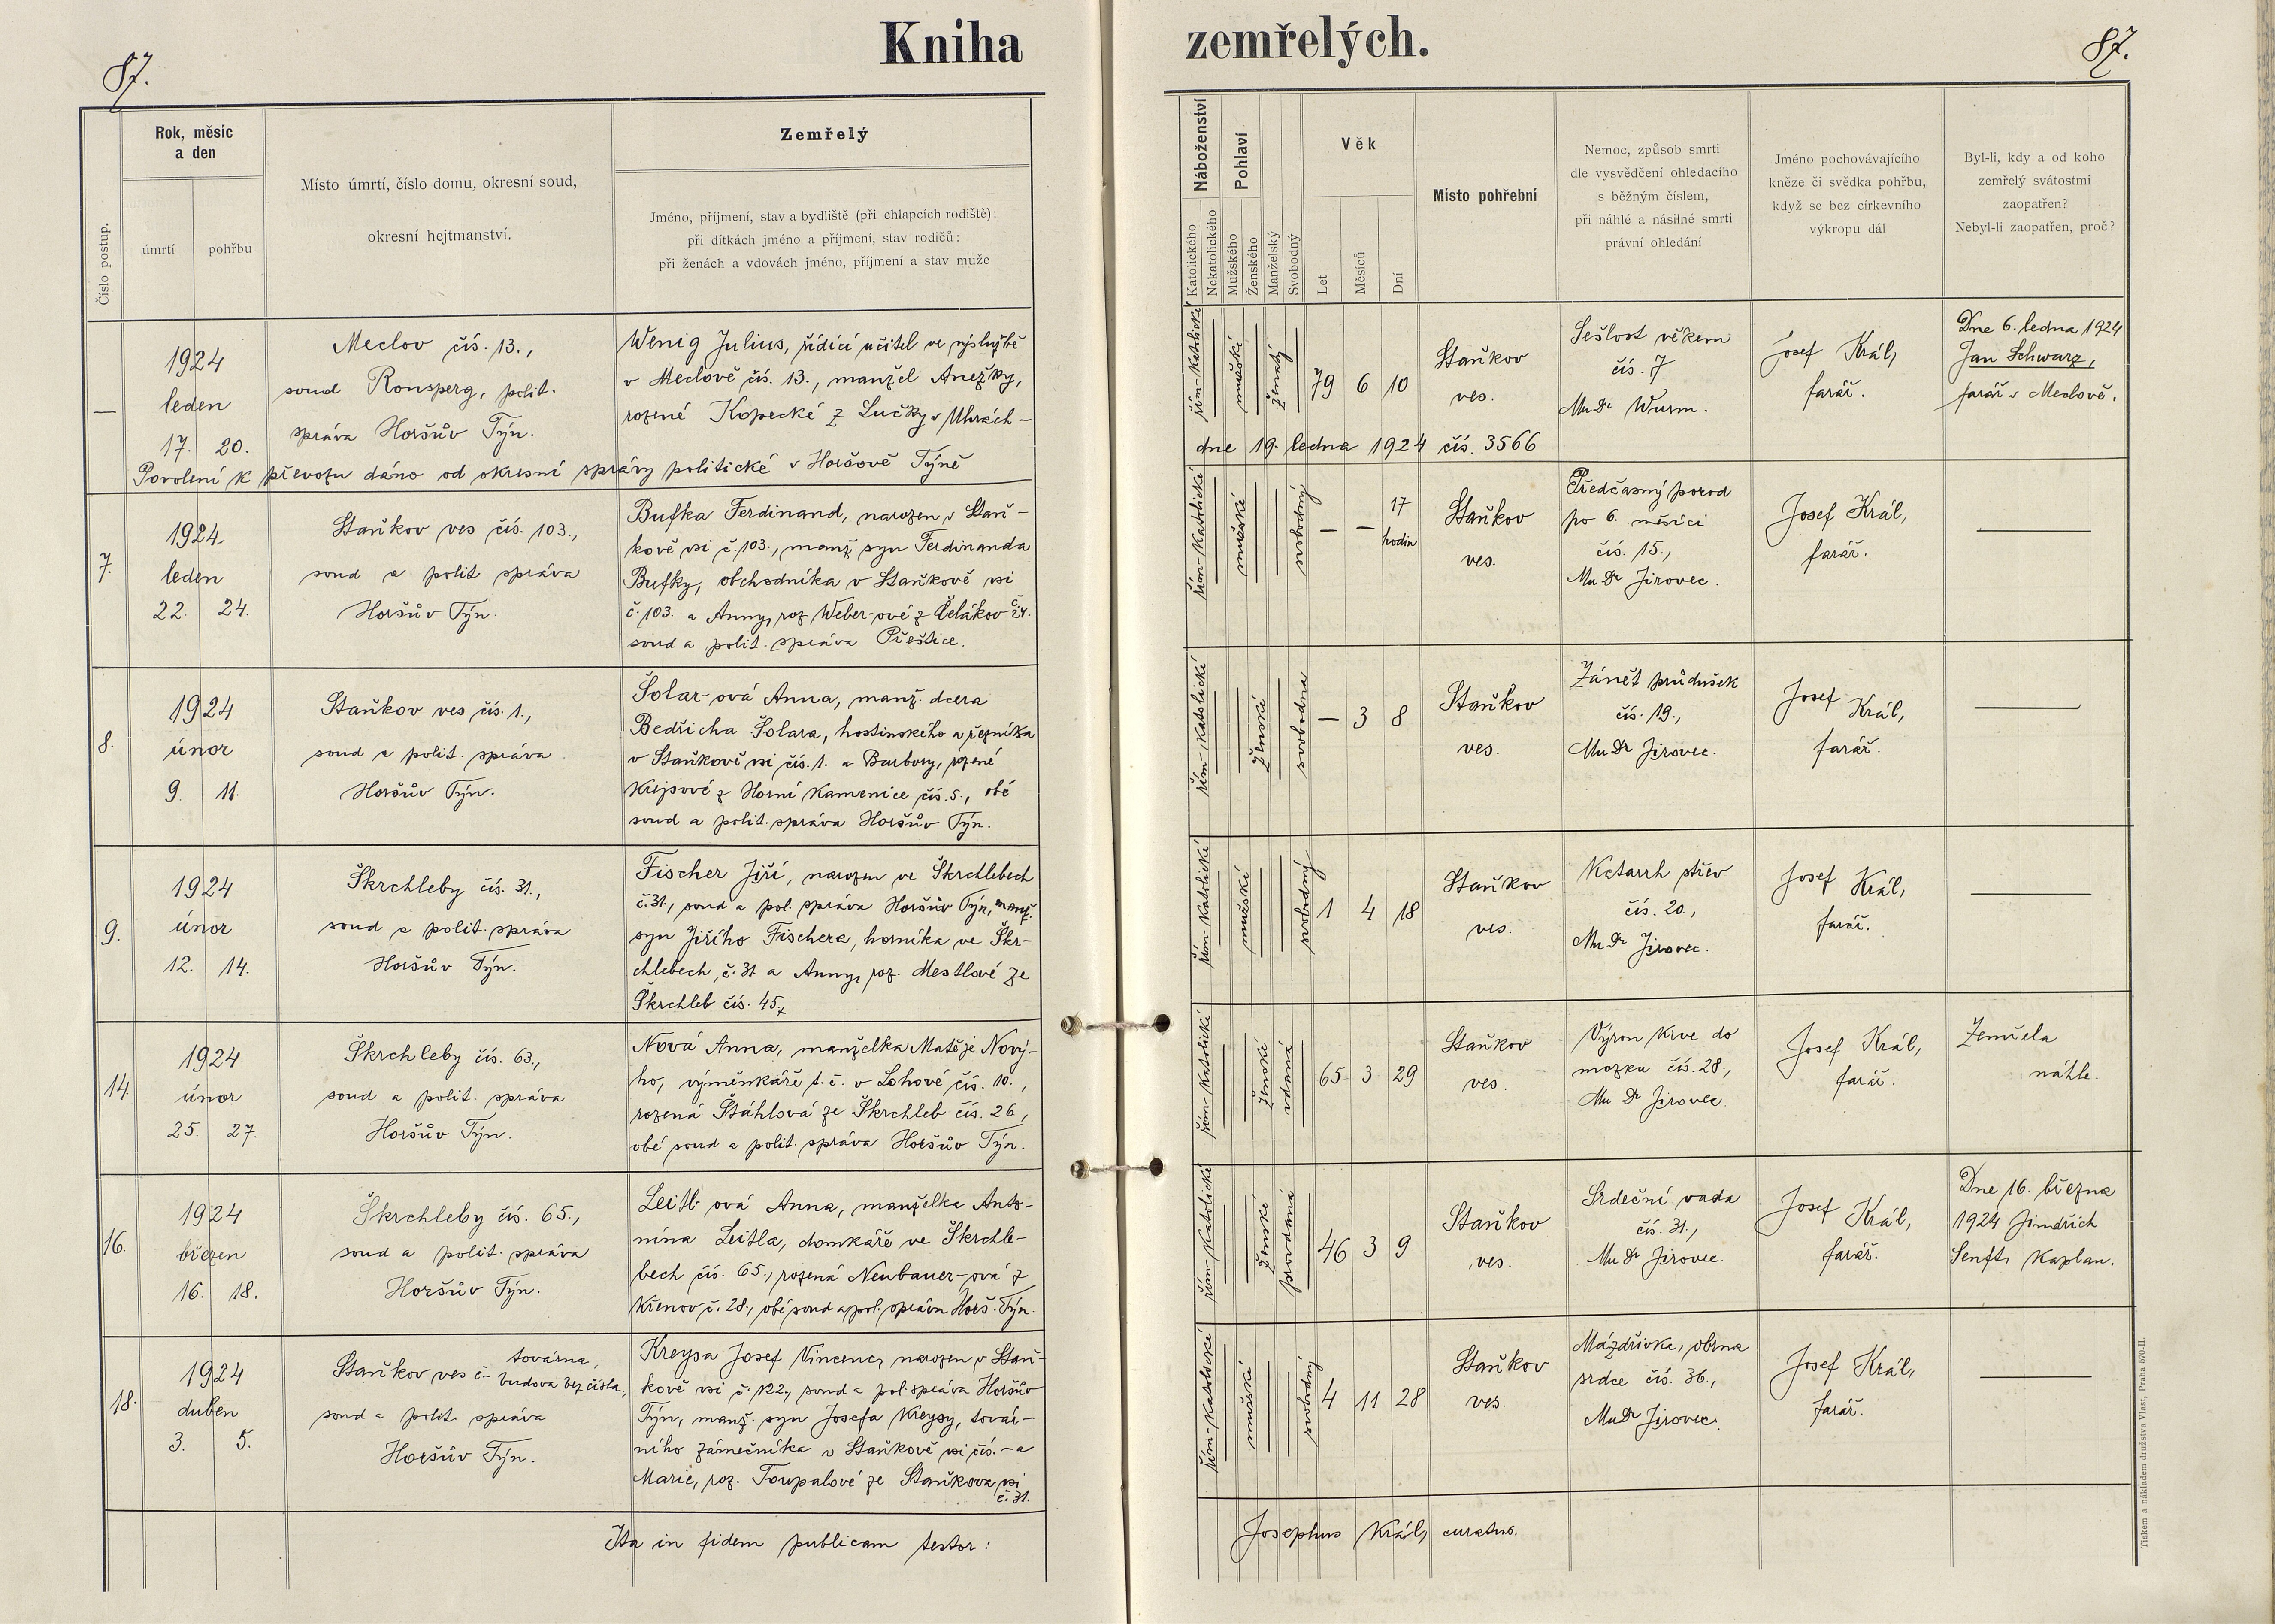 87.
Kniha zemřelých.
87.
Číslo postup.
Rok, měsíc
a den
úmrtí
pohřbu
Místo úmrtí, číslo domu, okresní soud,
okresní hejtmanství.
Zemřelý
Jméno, příjmení, stav a bydliště (při chlapcích rodiště):
při dítkách jméno a příjmení, stav rodičů:
při ženách a vdovách jméno, příjmení a stav muže
Náboženství
Katolického
Nekatolického
Pohlaví
Mužského
Ženského
Manželský
Svobodný
Věk
Let
Měsíců
Dní
Místo pohřební
Nemoc, způsob smrti
dle vysvědčení ohledacího
s běžným číslem,
při náhlé a násilné smrti
právní ohledání
Jméno pochovávajícího
kněze či svědka pohřbu,
když se bez církevního
výkropu dál
Byl-li, kdy a od koho
zemřelý svátostmi
zaopatřen?
Nebyl-li zaopatřen, proč?
—
1924
leden
17. 20.
Meclov čís. 13.,
soud Ronsperg, polit.
správa Horšův Týn.
Wenig Julius, řídící učitel ve výslužbě
v Meclově čís. 13., manžel Anežky,
rozené Kopecké z Lučky v Uhrách —
řím-katolické
mužské
ženatý
79 6 10
Staňkov
ves.
Sešlost věkem
čís. 7
MuDr Wurm.
Josef Král,
farář.
Dne 6. ledna 1924
Jan Schwarz,
farář v Meclově.
Povolení k převozu dáno od okresní správy politické v Horšově Týně
dne 19. ledna 1924 čís. 3566
7.
1924.
leden
22. 24.
Staňkov ves čís. 103.,
soud a polit správa
Horšův Týn.
Bufka Ferdinand, narozen v Staň-
kově vsi č. 103., manž. syn Ferdinanda
Bufky, obchodníka v Staňkově vsi
č. 103. a Anny, roz Weber-ové z Čelákov
soud a polit. správa Přeštice.
řím-katolické
mužské
svobodný
— — 17
hodin
Staňkov
ves.
Předčasný porod
po 6. měsíci
čís. 15.,
MuDr Jirovec.
Josef Král,
farář.
—
8.
1924
únor
9. 11.
Staňkov ves čís. 1.,
soud a polit. správa
Horšův Týn.
Šolar-ová Anna, manž. dcera
Bedřicha Šolara, hostinského a řezníka
v Staňkově vsi čís. 1. a Barbory, rozené
Krejsové z Horní Kamenice čís. 5., obé
soud a polit. správa Horšův Týn.
řím-katolické
ženské
svobodna
— 3 8
Staňkov
ves.
Zánět průdušek
čís. 19.,
MuDr Jirovec.
Josef Král,
farář.
—
9.
1924
únor
12. 14.
Škrchleby čís. 31.,
soud a polit. správa
Horšův Týn.
Fischer Jiří, narozen ve Škrchlebech
č. 31., soud a pol. správa Horšův Týn, manž.
syn Jiřího Fischera, horníka ve Škr-
chlebech, č. 31 a Anny, roz. Mestlové ze
Škrchleb čís. 45.
řím-katolické
mužské
svobodný
1 4 18
Staňkov
ves.
Katarrh střev
čís. 20.,
MuDr Jirovec.
Josef Král,
farář.
—
14.
1924
únor
25. 27.
Škrchleby čís. 63.,
soud a polit. správa
Horšův Týn.
Nová Anna, manželka Matěje Nový-
ho, výměnkáře t. č. v Lohové čís. 10.,
rozená Štáhlová ze Škrchleb čís. 26,
obé soud a polit. správa Horšův Týn.
řím-katolické
ženské
vdaná
65 3 29
Staňkov
ves.
Výron krve do
mozku čís. 28.,
MuDr Jirovec.
Josef Král,
farář.
Zemřela
náhle.
16.
1924
březen
16. 18.
Škrchleby čís. 65.,
soud a polit. správa
Horšův Týn.
Leitl-ová Anna, manželka Anto-
nína Leitla, domkáře ve Škrchle-
bech čís. 65., rozená Neubauer-ová z
Křenov č. 28., obé soud a pol. správa Horš. Týn.
řím-katolické
ženské
provdaná
46 3 9
Staňkov
ves.
Srdeční vada
čís. 31.,
MuDr Jirovec.
Josef Král,
farář.
Dne 16. března
1924 Jindřich
Senft, kaplan.
18.
1924
duben
3. 5.
Staňkov ves č— továrna,
budova bez čísla,
soud a polit. správa
Horšův Týn.
Kreysa Josef Vincenc, narozen v Staň-
kově vsi č. 122, soud a pol. správa Horšův
Týn, manž. syn Josefa Kreysy, továr-
ního zámečníka v Staňkově vsi čís. — a
Marie, roz. Toupalové ze Staňkova vsi
č. 31.
řím-katolické
mužské
svobodný
4 11 28
Staňkov
ves.
Mázdřivka, obrna
srdce čís. 36.,
MuDr Jirovec.
Josef Král,
farář.
—
Ita in fidem publicam testor:
Josephus Král, curatus.
Tiskem a nákladem družstva Vlast, Praha 570-II.